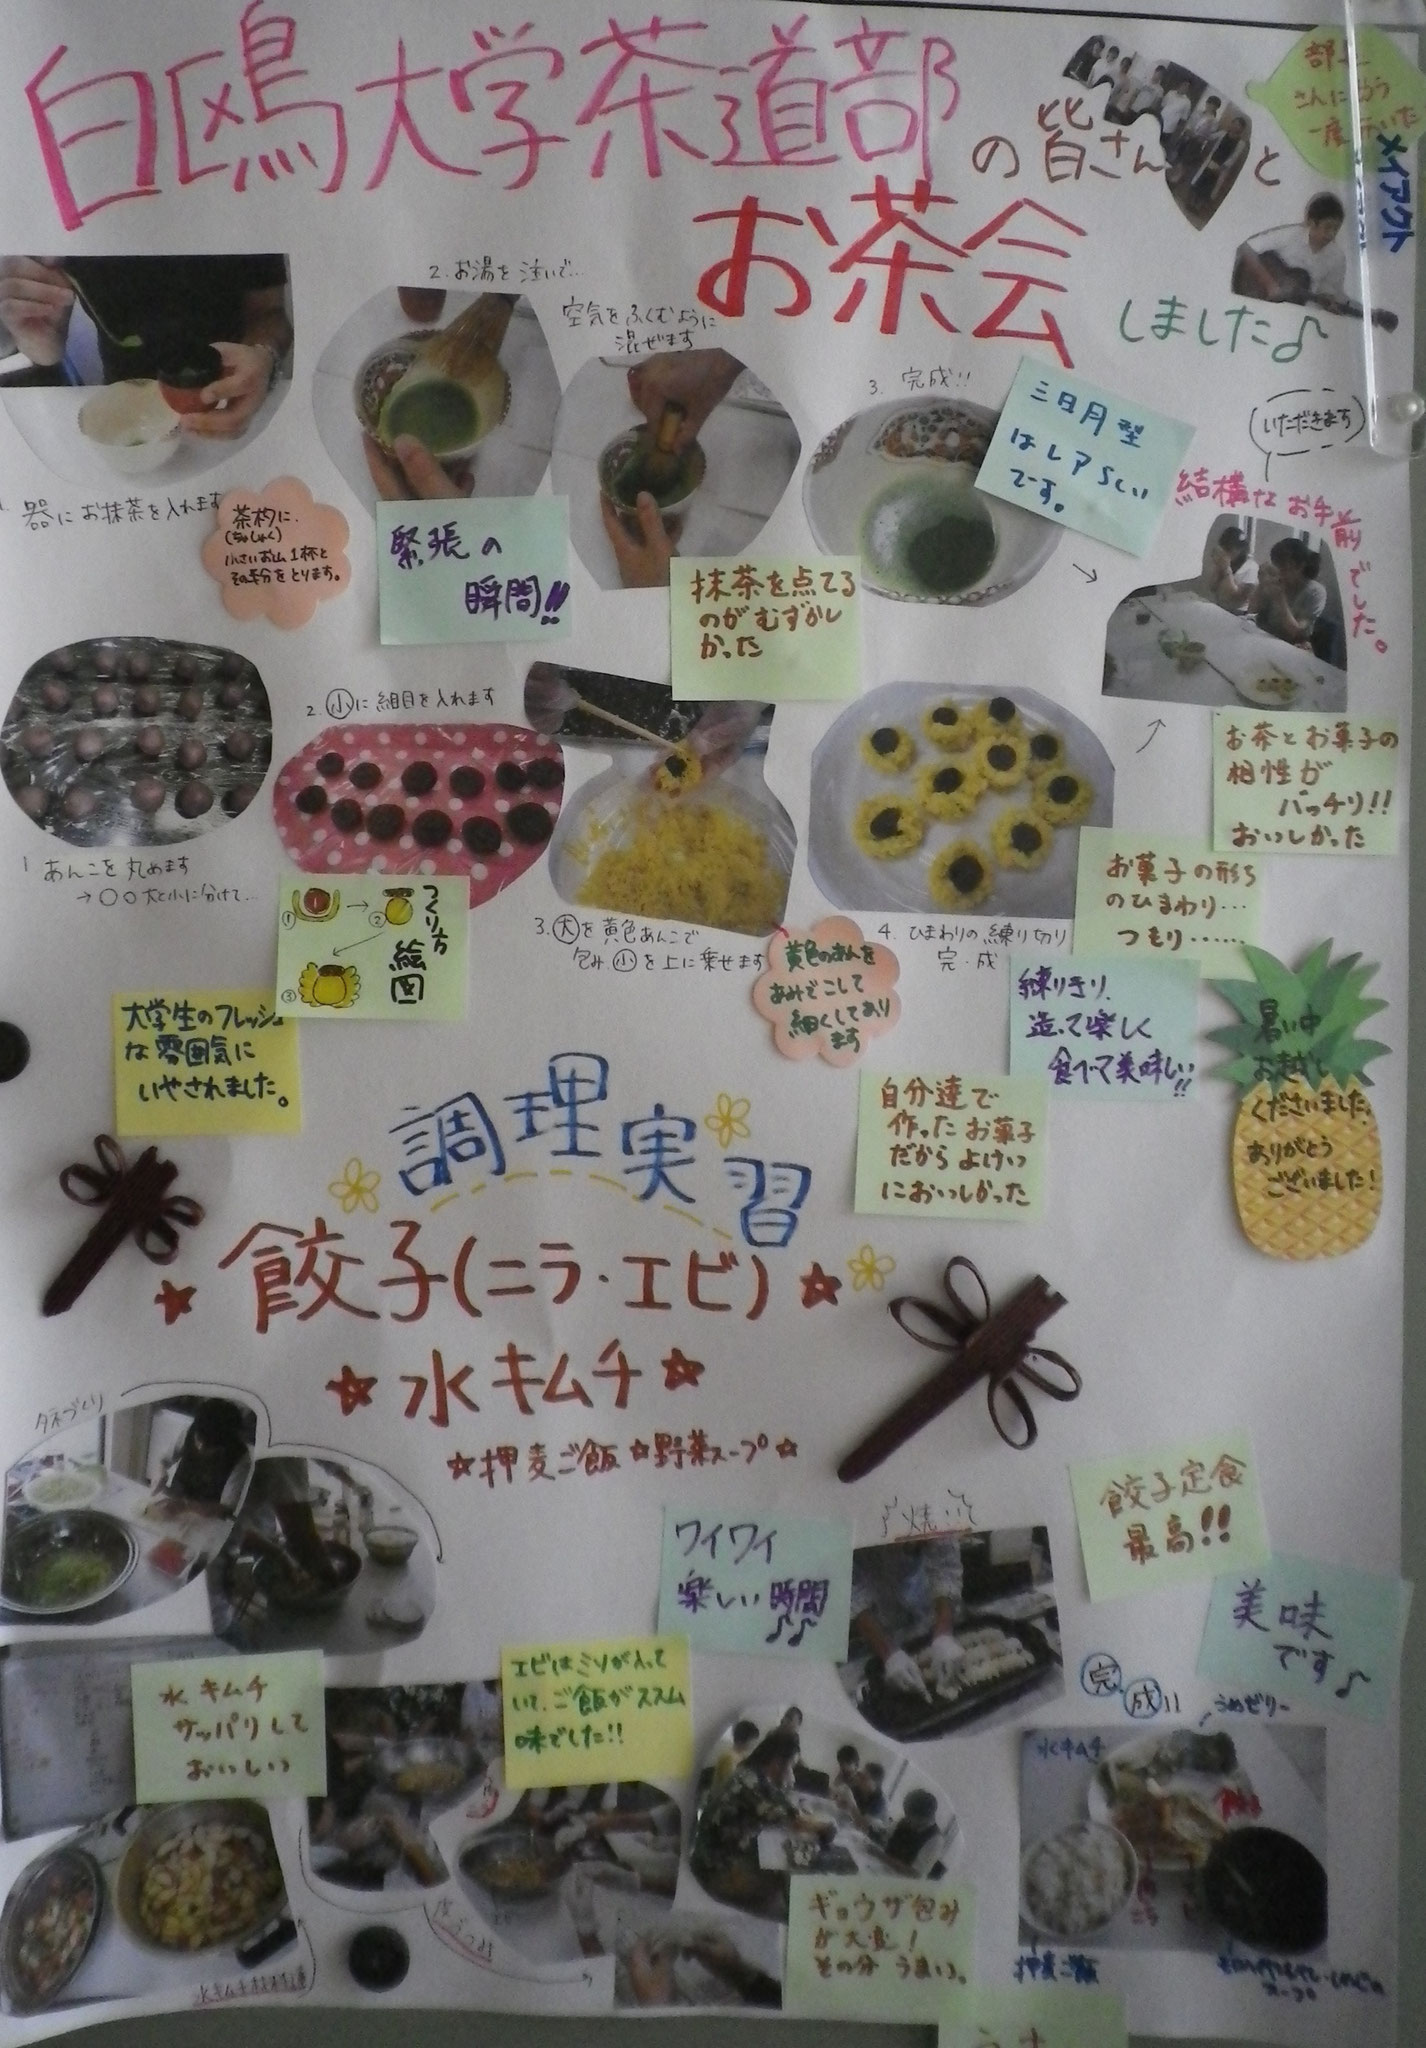 白鴎大学茶道部の皆さんと
お茶会しました♪
メイアクト
2. お湯を注いで…
空気をふくむように
混ぜます
3. 完成!!
三日月型
はレアらしい
です。
いただきます
結構なお手前でした。
1. 器にお抹茶を入れます
茶杓に
(ちゃしゃく)
小さいお山1杯と
その半分をとります。
緊張の
瞬間!!
抹茶を点てる
のがむずかし
かった
2. 小に細目を入れます
お茶とお菓子の
相性が
バッチリ!!
おいしかった
1 あんこを丸めます
→〇○大と小に分けて…
つくり方
絵図
①
②
③
3. 大を黄色あんこで
包み小を上に乗せます
黄色のあんを
あみでこして
細くしてあり
ます
4. ひまわりの練り切り
完・成
お菓子の形ら
のひまわり…
つもり……
練りきり、
造って楽しく
食べて美味しい!!
暑い中
お越し
くださいました。
ありがとう
ございました!
大学生のフレッシュ
な雰囲気に
いやされました。
自分達で
作ったお菓子
だからよけい
においしかった
調理実習
☆餃子(ニラ・エビ)☆
☆水キムチ☆
☆押麦ご飯☆野菜スープ☆
タネづくり
ワイワイ
楽しい時間
♪♪
焼いて
餃子定食
最高!!
美味
です♪
水キムチ
サッパリして
おいしい
エビはミソが入って
いて、ご飯がススム
味でした!!
完成!!
うめゼリー
水キムチ
ギョウザ包み
が大変!
その分うまい。
押麦ご飯
スープ